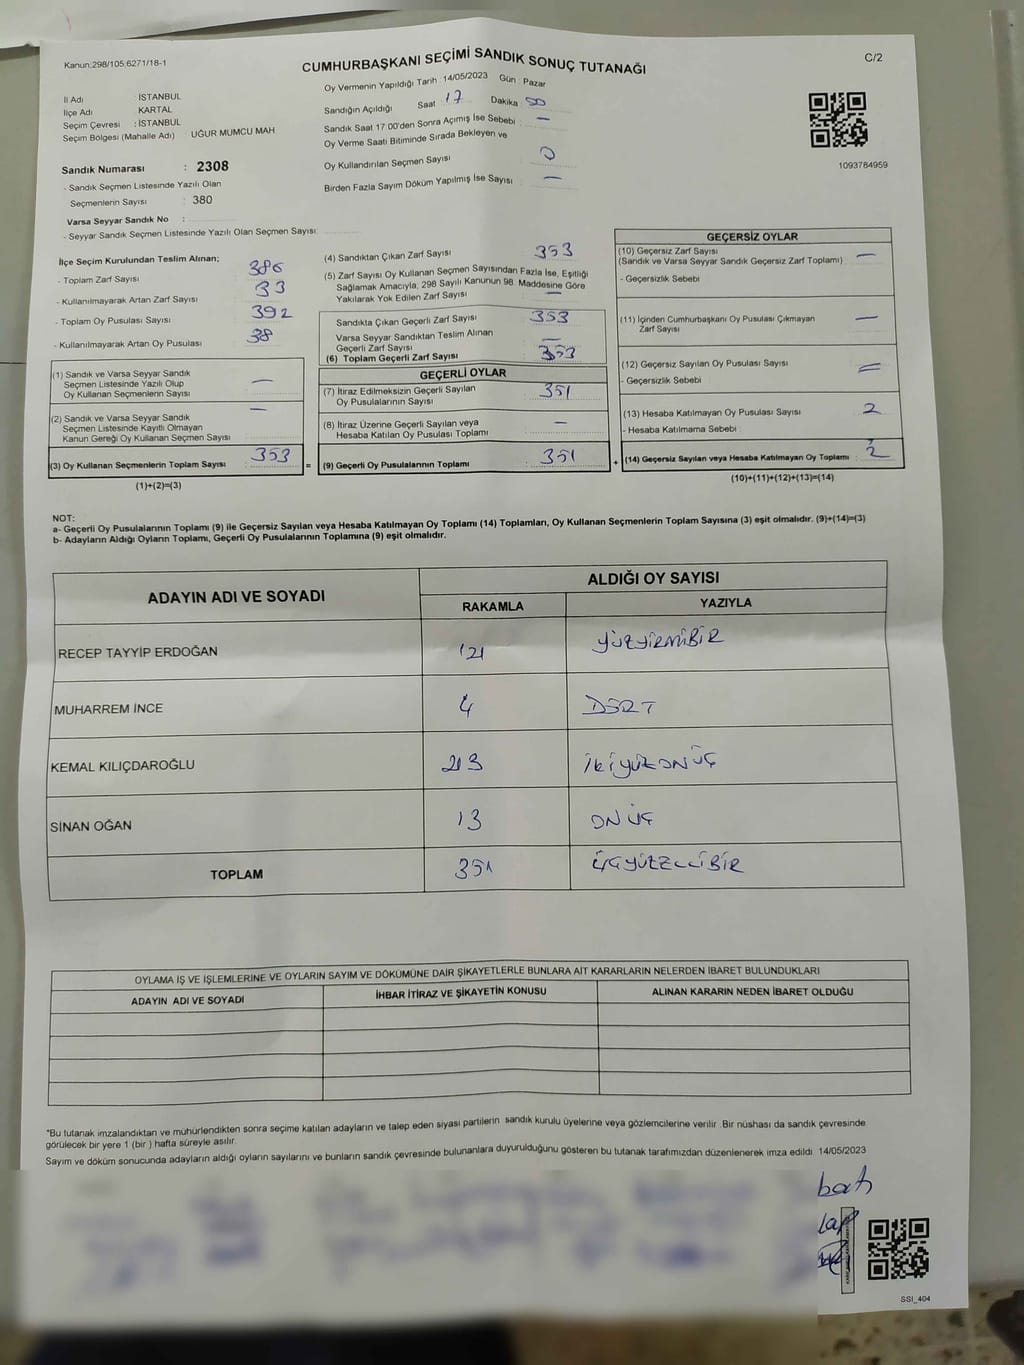 Kanun:298/105;6271/18-1
CUMHURBAŞKANI SEÇİMİ SANDIK SONUÇ TUTANAĞI
C/2
İl Adı : İSTANBUL
İlçe Adı : KARTAL
Seçim Çevresi : İSTANBUL
Seçim Bölgesi (Mahalle Adı) : UĞUR MUMCU MAH
Sandık Numarası : 2308
- Sandık Seçmen Listesinde Yazılı Olan
Seçmenlerin Sayısı : 380
Varsa Seyyar Sandık No :
- Seyyar Sandık Seçmen Listesinde Yazılı Olan Seçmen Sayısı:
Oy Vermenin Yapıldığı Tarih : 14/05/2023 Gün : Pazar
Sandığın Açıldığı Saat 17 Dakika 50
Sandık Saat 17:00'den Sonra Açımış İse Sebebi : —
Oy Verme Saati Bitiminde Sırada Bekleyen ve
Oy Kullandırılan Seçmen Sayısı : 0
Birden Fazla Sayım Döküm Yapılmış İse Sayısı : —
1093784959
İlçe Seçim Kurulundan Teslim Alınan;
- Toplam Zarf Sayısı : 386
- Kullanılmayarak Artan Zarf Sayısı : 33
- Toplam Oy Pusulası Sayısı : 392
- Kullanılmayarak Artan Oy Pusulası : 38
(1) Sandık ve Varsa Seyyar Sandık
Seçmen Listesinde Yazılı Olup
Oy Kullanan Seçmenlerin Sayısı : —
(2) Sandık ve Varsa Seyyar Sandık
Seçmen Listesinde Kayıtlı Olmayan
Kanun Gereği Oy Kullanan Seçmen Sayısı : —
(3) Oy Kullanan Seçmenlerin Toplam Sayısı : 353
(1)+(2)=(3)
(4) Sandıktan Çıkan Zarf Sayısı : 353
(5) Zarf Sayısı Oy Kullanan Seçmen Sayısından Fazla İse, Eşitliği
Sağlamak Amacıyla, 298 Sayılı Kanunun 98. Maddesine Göre
Yakılarak Yok Edilen Zarf Sayısı : —
Sandıkta Çıkan Geçerli Zarf Sayısı : 353
Varsa Seyyar Sandıktan Teslim Alınan
Geçerli Zarf Sayısı : —
(6) Toplam Geçerli Zarf Sayısı : 353
GEÇERLİ OYLAR
(7) İtiraz Edilmeksizin Geçerli Sayılan
Oy Pusulalarının Sayısı : 351
(8) İtiraz Üzerine Geçerli Sayılan veya
Hesaba Katılan Oy Pusulası Toplamı : —
= (9) Geçerli Oy Pusulalarının Toplamı : 351
GEÇERSİZ OYLAR
(10) Geçersiz Zarf Sayısı
(Sandık ve Varsa Seyyar Sandık Geçersiz Zarf Toplamı) : —
- Geçersizlik Sebebi :
(11) İçinden Cumhurbaşkanı Oy Pusulası Çıkmayan
Zarf Sayısı : —
(12) Geçersiz Sayılan Oy Pusulası Sayısı : —
- Geçersizlik Sebebi :
(13) Hesaba Katılmayan Oy Pusulası Sayısı : 2
- Hesaba Katılmama Sebebi :
+ (14) Geçersiz Sayılan veya Hesaba Katılmayan Oy Toplamı : 2
(10)+(11)+(12)+(13)=(14)
NOT:
a- Geçerli Oy Pusulalarının Toplamı (9) ile Geçersiz Sayılan veya Hesaba Katılmayan Oy Toplamı (14) Toplamları, Oy Kullanan Seçmenlerin Toplam Sayısına (3) eşit olmalıdır. (9)+(14)=(3)
b- Adayların Aldığı Oyların Toplamı, Geçerli Oy Pusulalarının Toplamına (9) eşit olmalıdır.
ADAYIN ADI VE SOYADI ALDIĞI OY SAYISI
RAKAMLA YAZIYLA
RECEP TAYYİP ERDOĞAN 121 YÜZYİRMİBİR
MUHARREM İNCE 4 DÖRT
KEMAL KILIÇDAROĞLU 213 İKİYÜZONÜÇ
SİNAN OĞAN 13 ONÜÇ
TOPLAM 351 ÜÇYÜZELLİBİR
OYLAMA İŞ VE İŞLEMLERİNE VE OYLARIN SAYIM VE DÖKÜMÜNE DAİR ŞİKAYETLERLE BUNLARA AİT KARARLARIN NELERDEN İBARET BULUNDUKLARI
ADAYIN ADI VE SOYADI İHBAR İTİRAZ VE ŞİKAYETİN KONUSU ALINAN KARARIN NEDEN İBARET OLDUĞU
*Bu tutanak imzalandıktan ve mühürlendikten sonra seçime katılan adayların ve talep eden siyasi partilerin sandık kurulu üyelerine veya gözlemcilerine verilir. Bir nüshası da sandık çevresinde
görülecek bir yere 1 (bir ) hafta süreyle asılır.
Sayım ve döküm sonucunda adayların aldığı oyların sayılarını ve bunların sandık çevresinde bulunanlara duyurulduğunu gösteren bu tutanak tarafımızdan düzenlenerek imza edildi. 14/05/2023
SSI_404